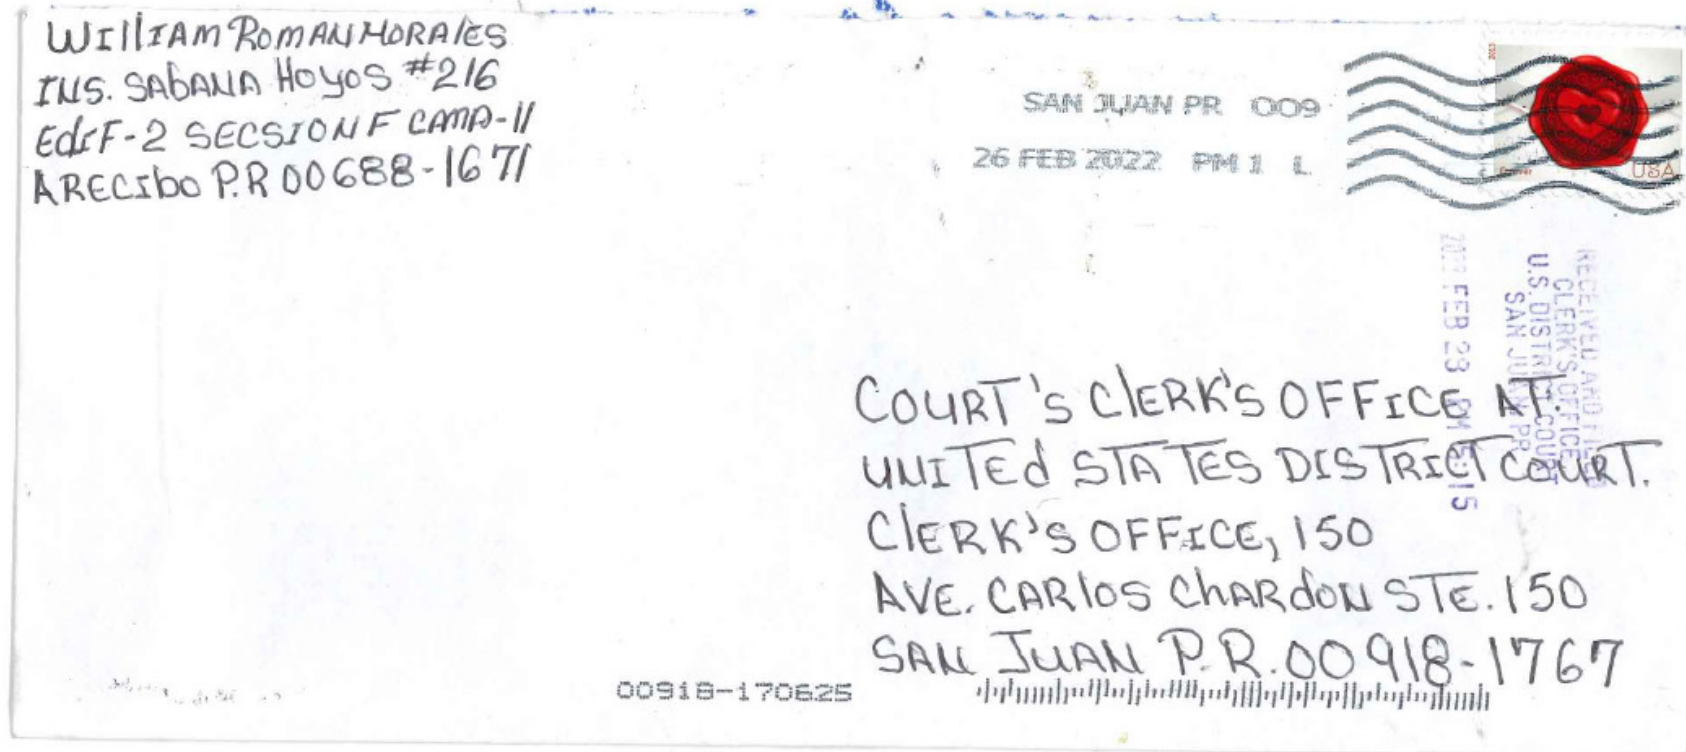 WILLIAM ROMAN MORALES
INS. SABANA HOYOS #216
EDIF-2 SECSION F CAMA-11
ARECIBO P.R 00688-1671
SAN JUAN PR 009
26 FEB 2022 PM 1 L
2013
Forever
USA
RECEIVED AND FILED
CLERK'S OFFICE
U.S. DISTRICT COURT
SAN JUAN PR
FEB 28 PM 5:15
COURT'S CLERK'S OFFICE AT.
UNITED STATES DISTRICT COURT.
CLERK'S OFFICE, 150
AVE. CARLOS CHARDON STE. 150
SAN JUAN P.R. 00918-1767
00918-170625